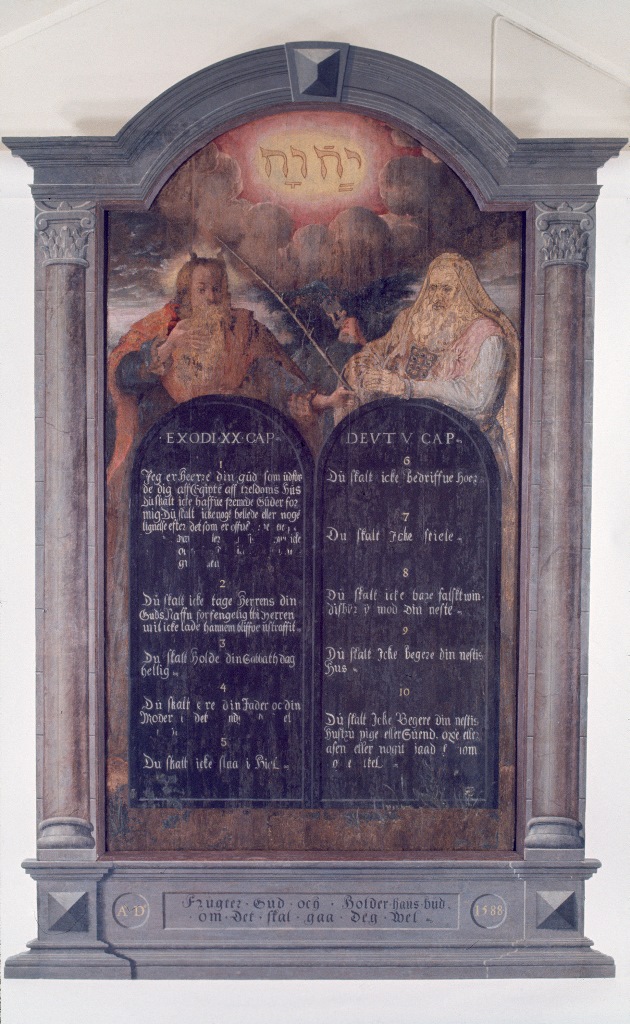 יַהֹוָה
EXODI·XX·CAP·
1
Jeg er Heere din gùd som ùdför
de dig aff Egipte aff treldoms Hùs
Dù skalt icke haffùe fremede Gùder for
mig Dù skalt icke noge bellede eller noge
lignelse efter det som er offùe
2
Dù skalt icke tage Herrens din
Gùds Naffn forfengelig thi Herren
wil icke lade hannem bliffùe ùstraffit
3
Dù skalt Holde din Sabbath dag
hellig
4
Dù skalt ere din Fader oc din
Moder det
5
Dù skalt icke slaa i Hiel
DEVT V CAP
6
Dù skalt icke bedriffùe Hoer
7
Dù skalt Icke stiele
8
Dù skalt icke bære falskt win
disbyrd mod Din neste
9
Dù skalt Icke begere din nestis
Hùs
10
Dù skalt Icke Begere din nestis
hùstrù pige eller Sùend, oxe eller
asen eller nogit
A·D
Frùgter·Gùd·och·Holder·hans·bùd·
·om·Det·skal·gaa·Deg·Wel·
1588